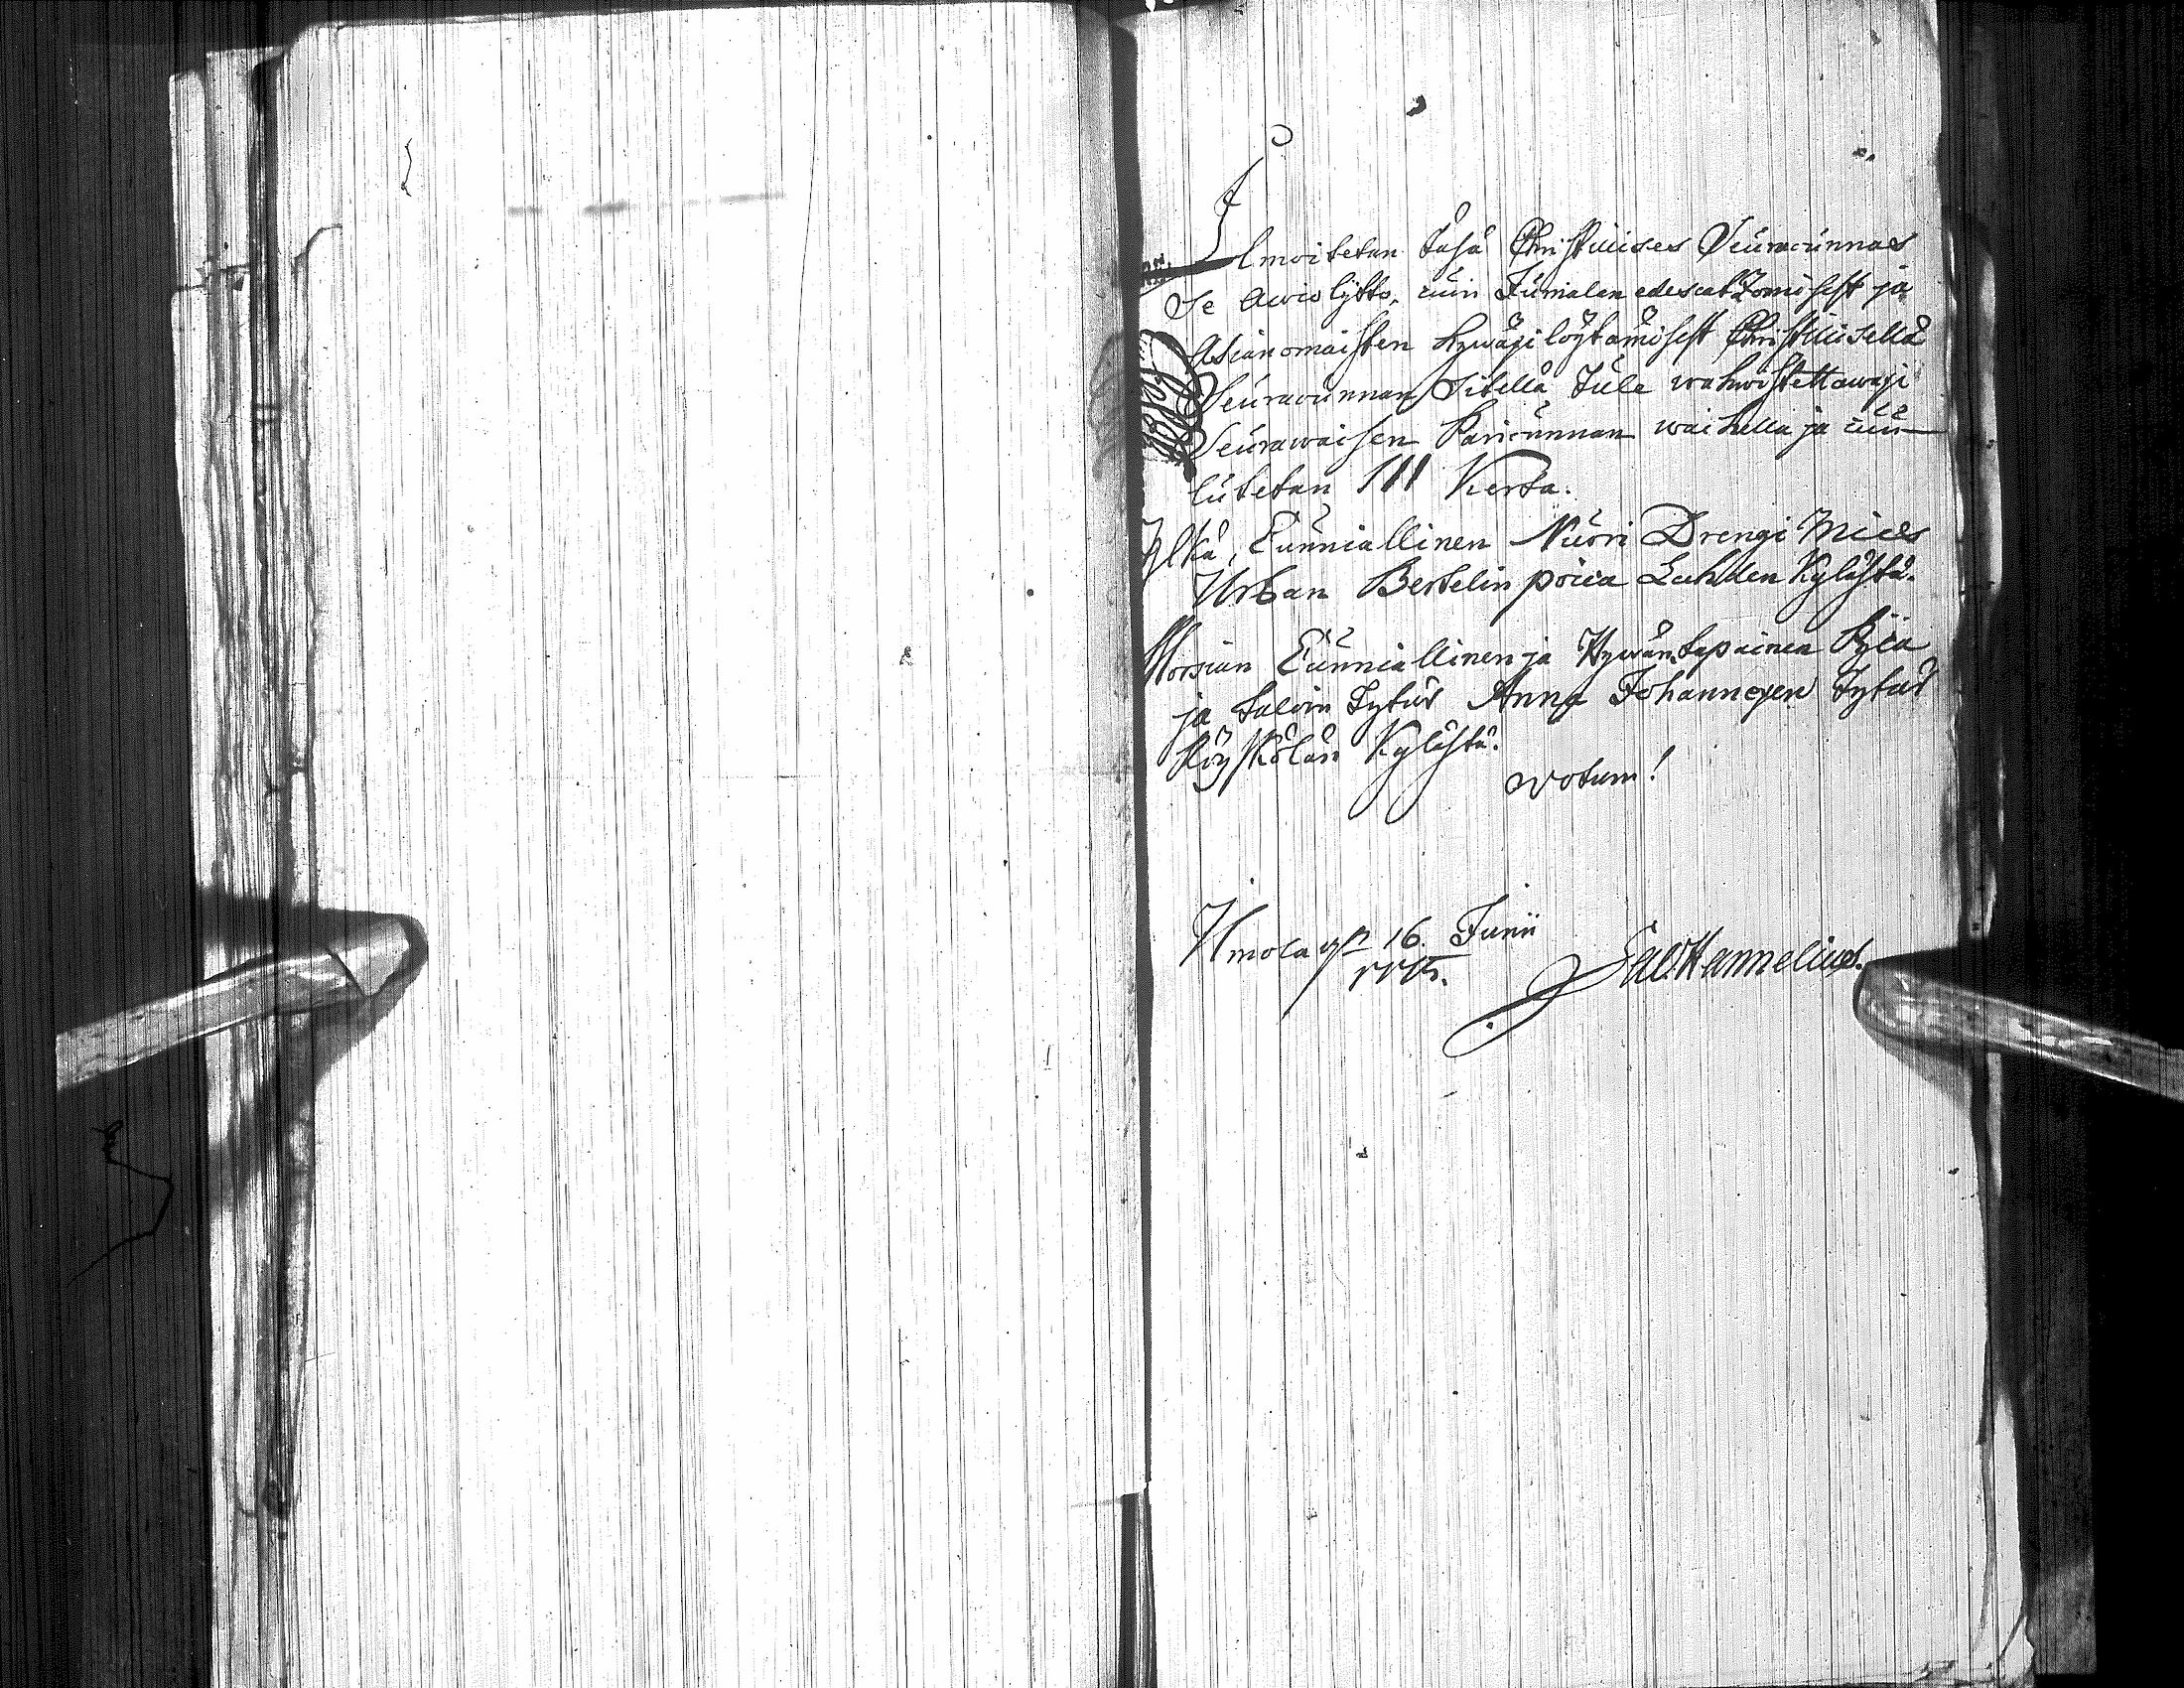 Ilmoitetan täsä Christilises Seuracunnas
Se Awiolijtto, cuin Jumalan edescatzomisest ja
Asianomaisten hywäxi löytämisest Christilisellä
Seuracunnan Sitellä Tule wahwistettawaxi
Seurawaisen Paricunnan waihella ja cuu-
lutetan III Kerta.
Ylkä, Cunniallinen Nuori Drengi Mies
Urban Bertelin poica Lahden Kylästä.
Morsian Cunniallinen ja Hywäntapainen Pijca
ja taloin tytär Anna Johannexen Tytär
Röyskölän Kylästä.
votum!
Ilmola 16. Junii
Hannelius.